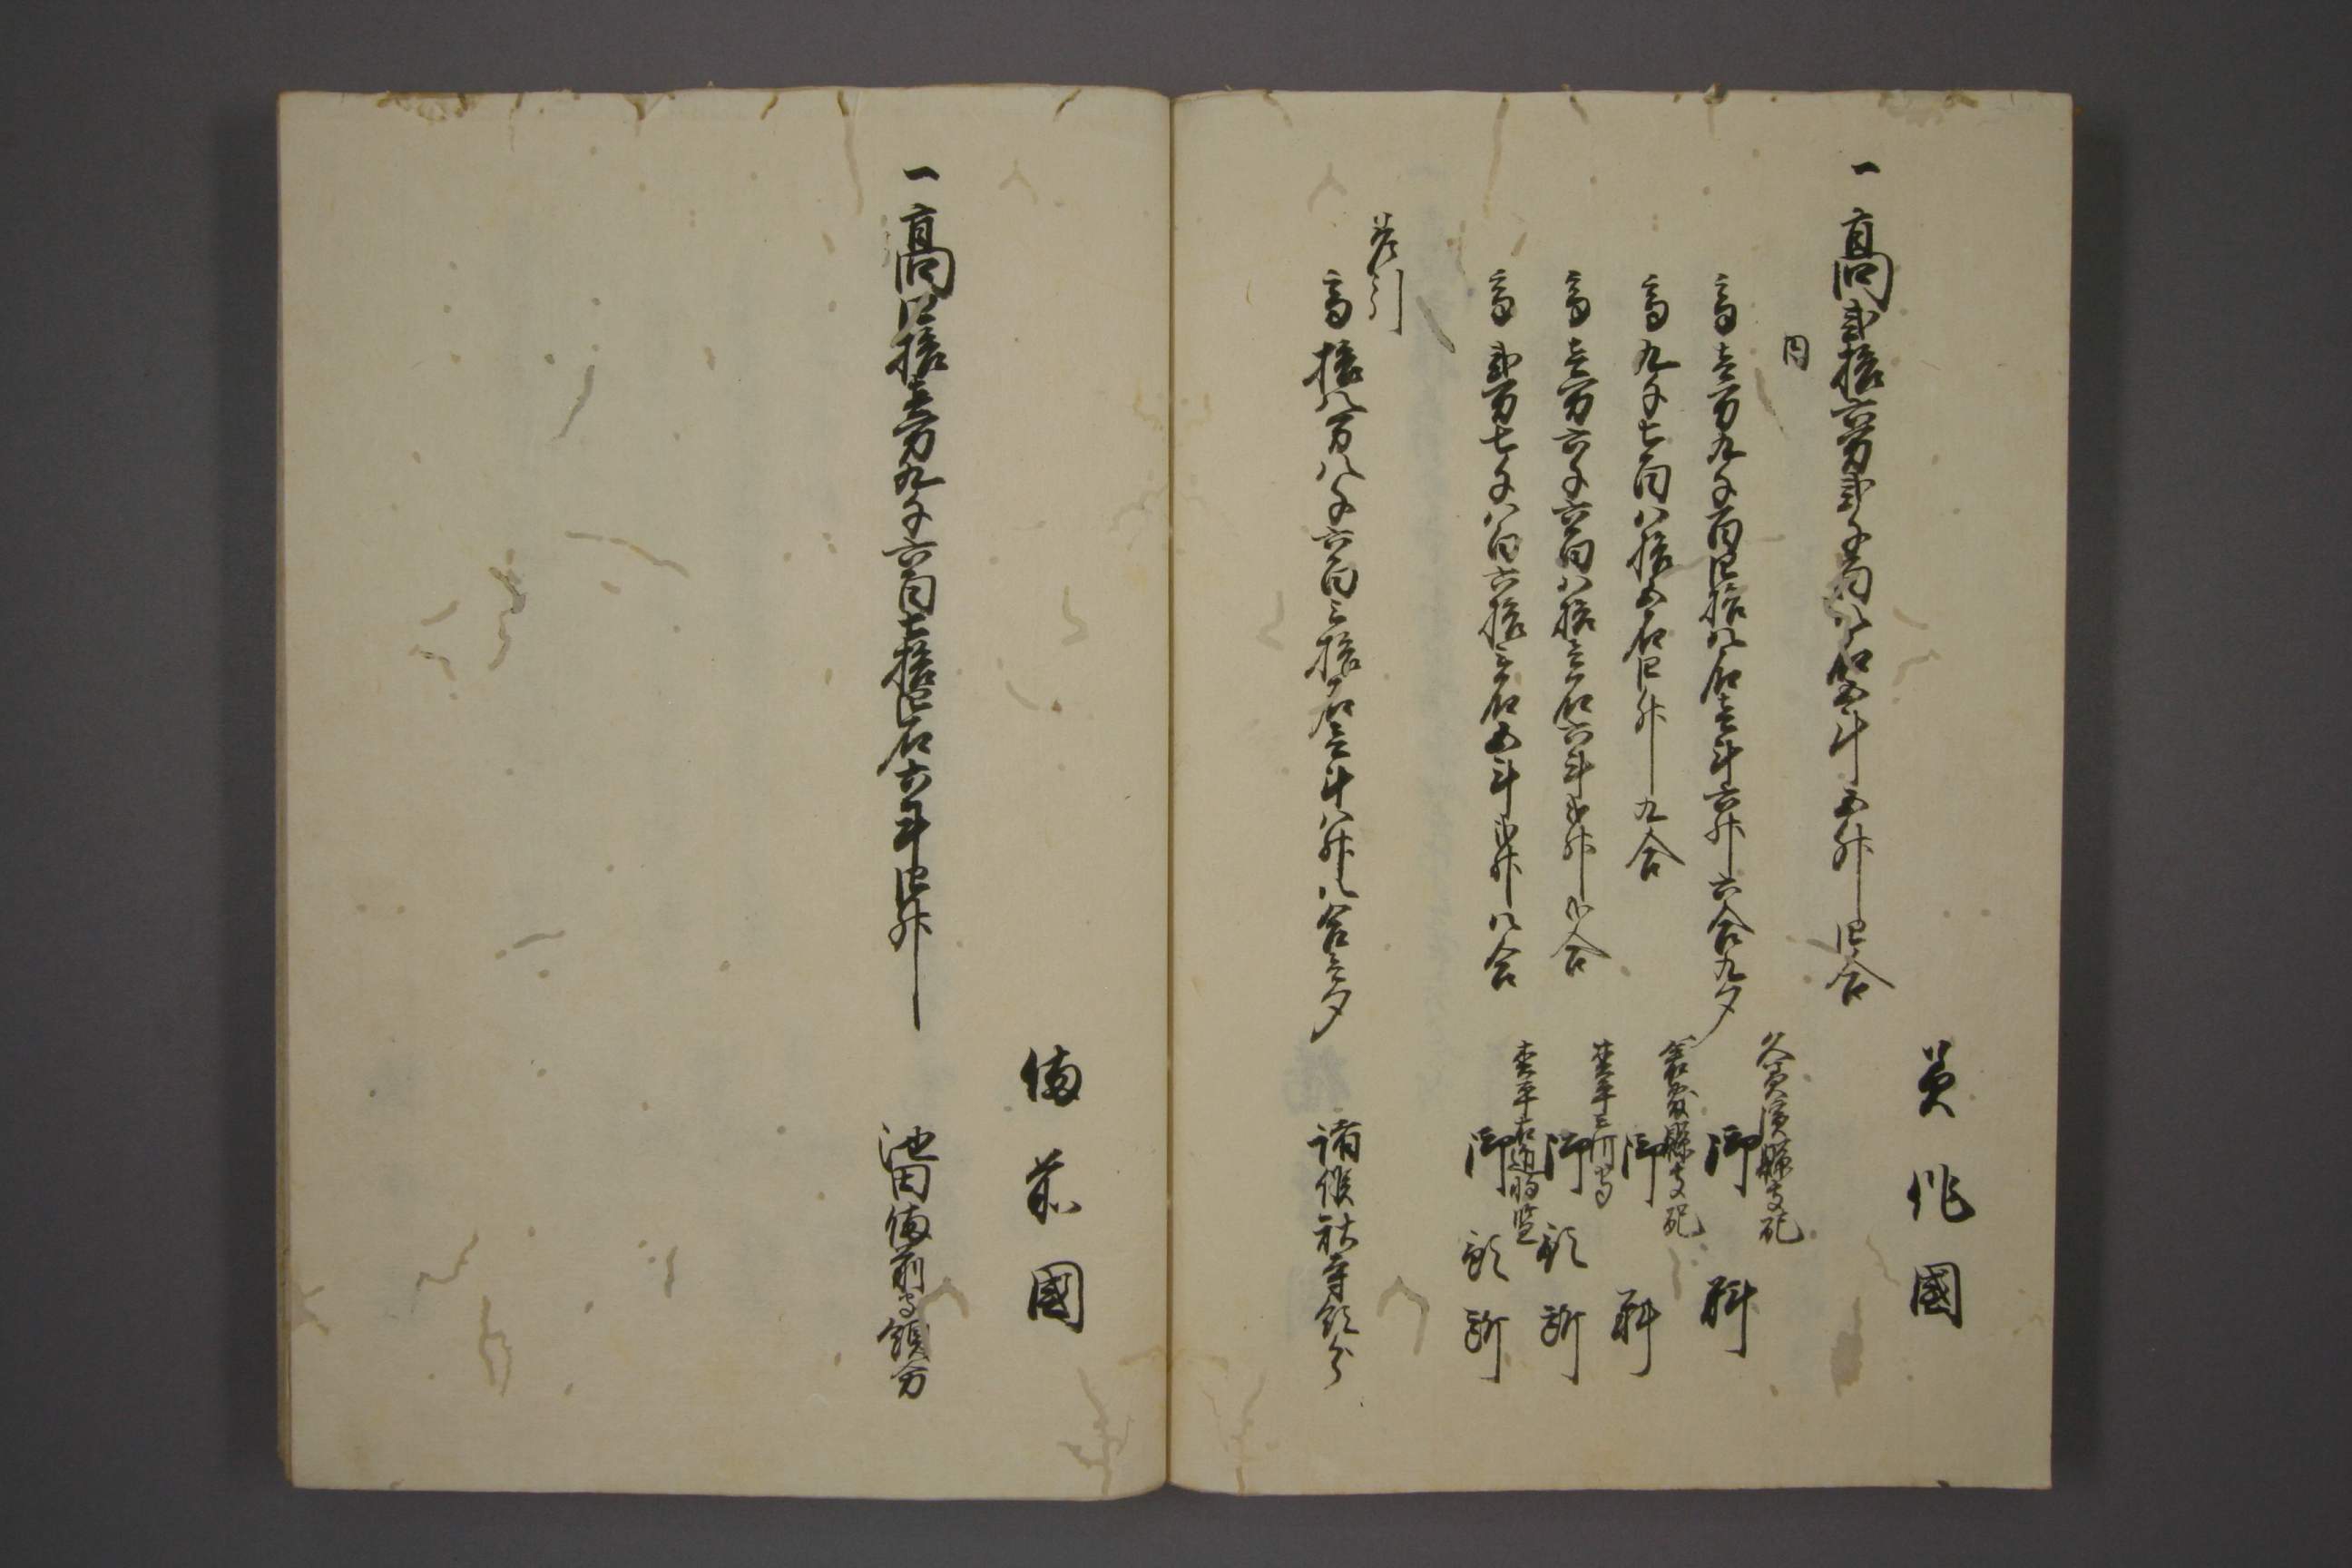 美作國
一高貳拾六万貳千百八石五斗五升四合
内
高壱万九千百四拾八石壱斗六升六合九夕
久美濱縣支配
御料
高九千七百八拾五石四升九合
倉敷縣支配
御料
高壱万六千六百八拾壱石六斗弐升弐合
松平三河守
御預所
高弐万七千八百六拾三石五斗弐升八合
松平右近将監
御預所
差引
高拾八万八千六百三拾石壱斗八升八合壱夕
諸侯社寺領分
備前國
一高四拾壱万九千六百七拾四石六斗四升
池田備前守領分